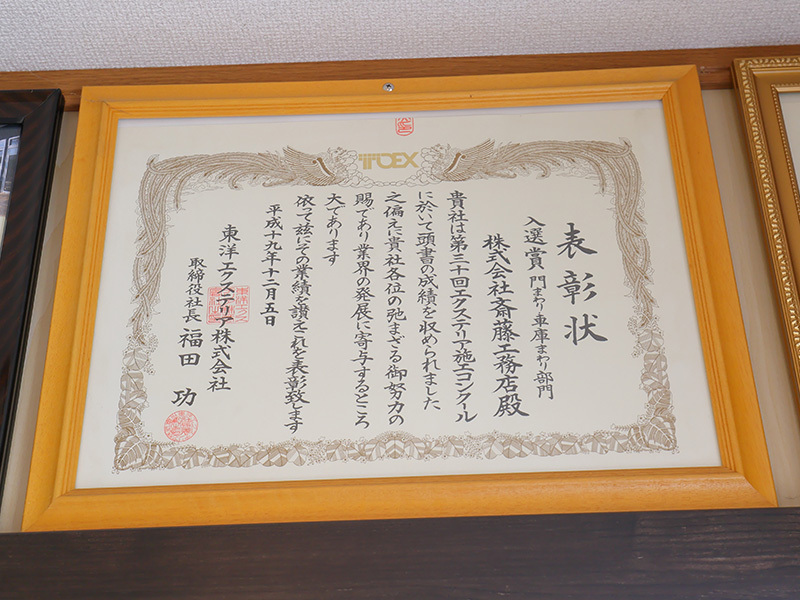 TOEX
表彰状
入選賞 門まわり・車庫まわり部門
株式会社斎藤工務店殿
貴社は第三十回エクステリア施工コンクール
に於いて頭書の成績を収められました
之偏えに貴社各位の弛まざる御努力の
賜であり業界の発展に寄与するところ
大であります
依って茲にその業績を讃えこれを表彰致します
平成十九年十二月五日
東洋エクステリア株式会社
取締役社長 福田 功